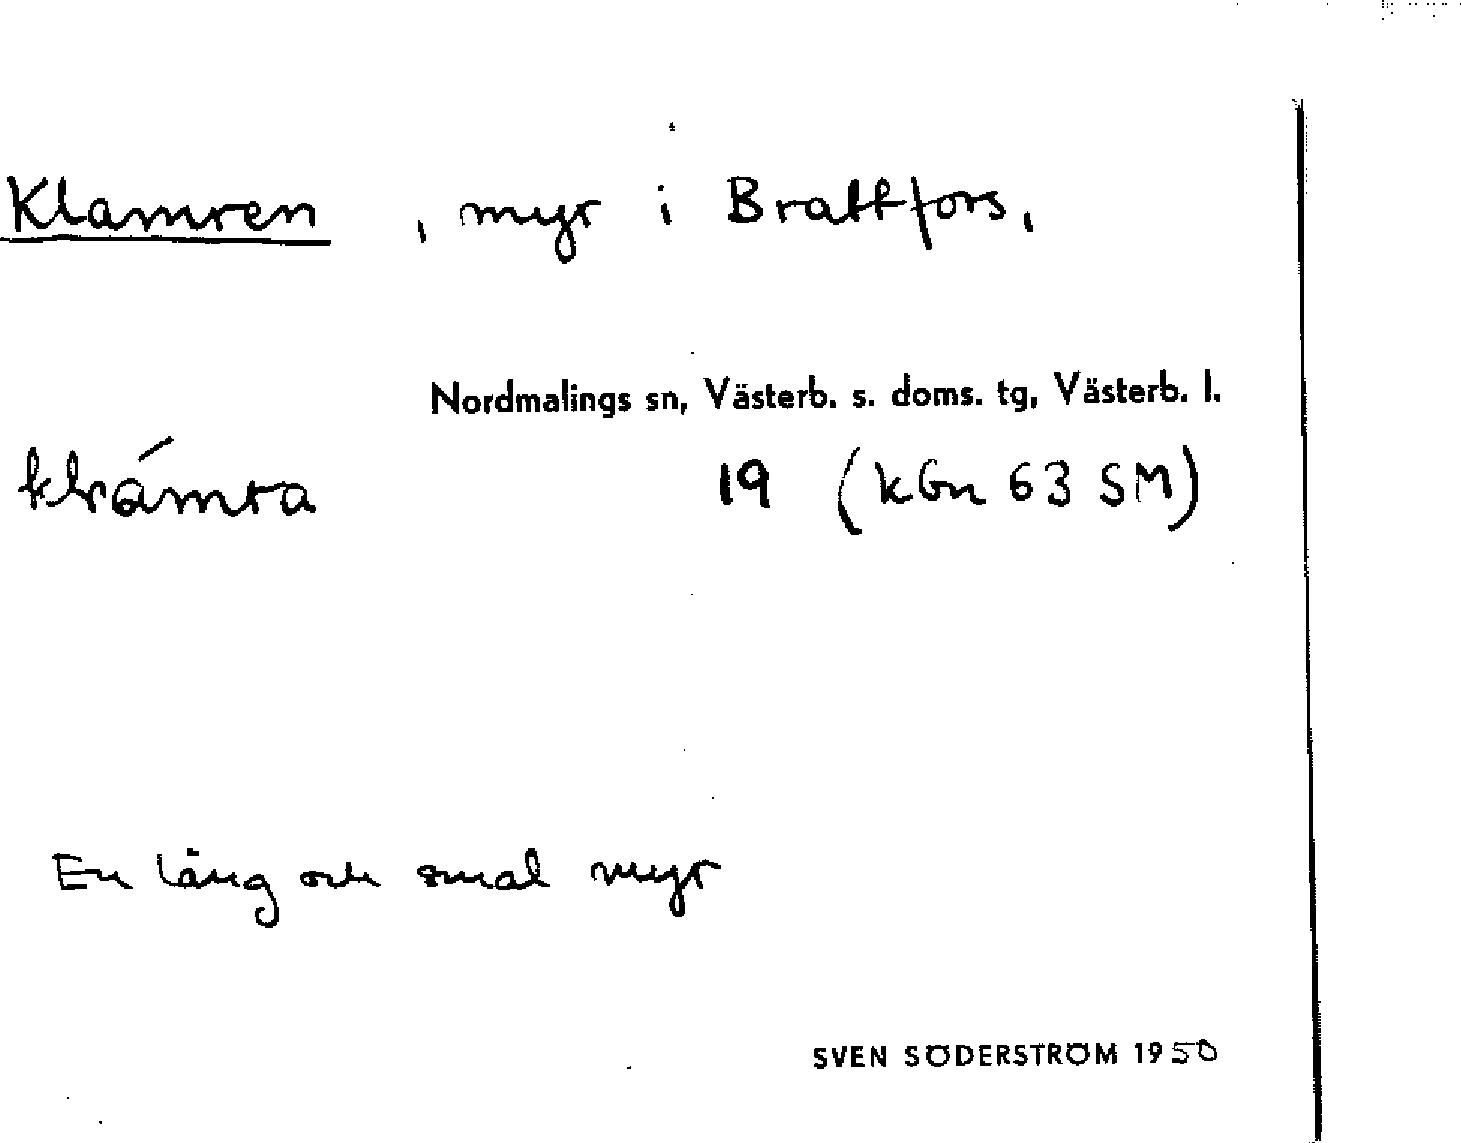 Klamren, myr i Brattfors,
Nordmalings sn, Västerb. s. doms. tg, Västerb. l.
19 (kGn 63 SM)
En lång och smal myr
SVEN SÖDERSTRÖM 1950